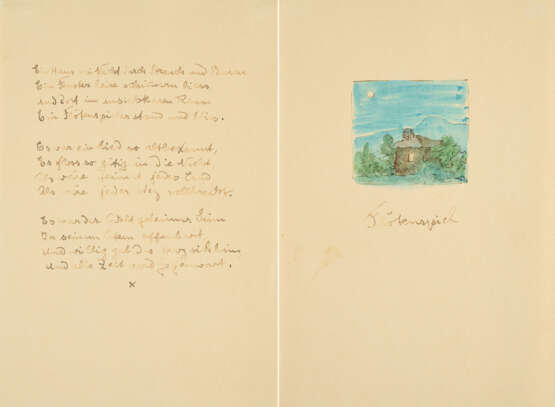 Ein Haus bei Nacht durch Strauch und Baum
Ein Fenster leise schimmern liess,
und dort im unsichtbaren Raum
Ein Flötenspieler stand und blies.
Es war ein Lied so altbekannt,
Es floss so gütig in die Nacht,
Als wäre Heimat jedes Land,
Als wäre jeder Weg vollbracht.
Es war der Welt geheimer Sinn
In seinem Atem offenbart,
Und willig gab das Herz sich hin
und alle Zeit ward Gegenwart.
x
Flötenspiel